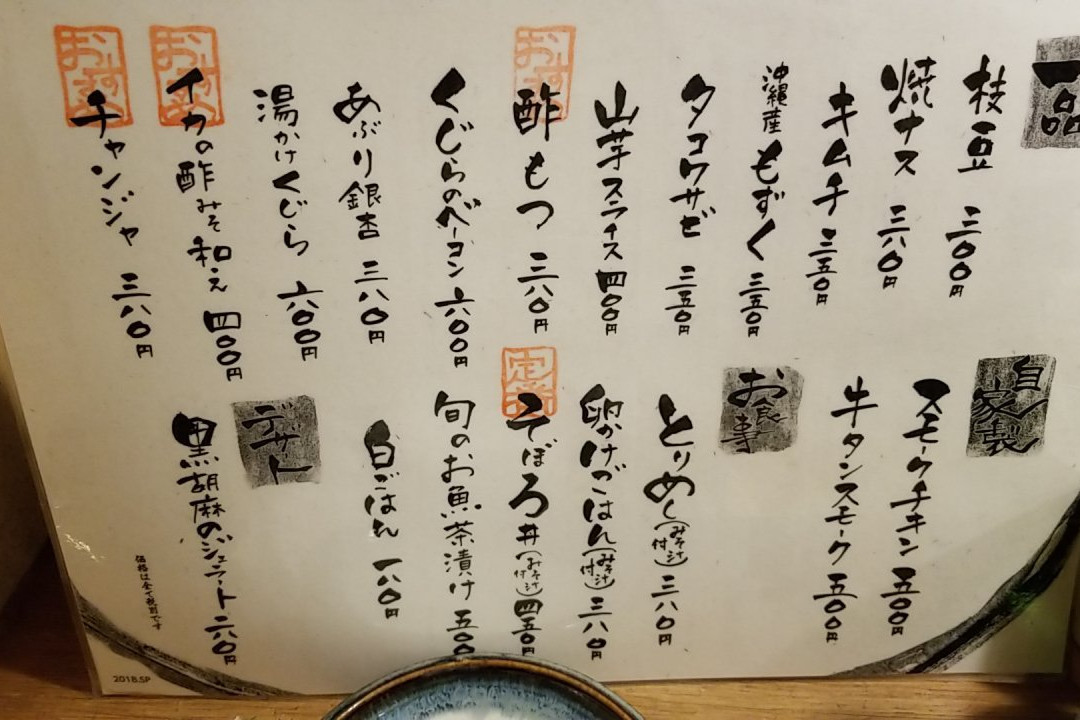 一品
枝豆 三〇〇円
焼ナス 三八〇円
キムチ 三五〇円
沖縄産もずく 三五〇円
タコワサビ 三五〇円
山芋スライス 四〇〇円
おすすめ
酢もつ 三八〇円
くじらのベーコン 六〇〇円
あぶり銀杏 三八〇円
湯かけくじら 六〇〇円
おすすめ
イカの酢みそ和え 四〇〇円
おすすめ
チャンジャ 三八〇円
自家製
スモークチキン 五〇〇円
牛タンスモーク 五〇〇円
お食事
とりめし(みそ汁付) 三八〇円
卵かけごはん(みそ汁付) 三八〇円
定番
そぼろ丼(みそ汁付) 四五〇円
旬のお魚茶漬け 五〇〇
白ごはん 一八〇円
デザート
黒胡麻のジェラート 二八〇円
価格は全て税別です
2018.SP